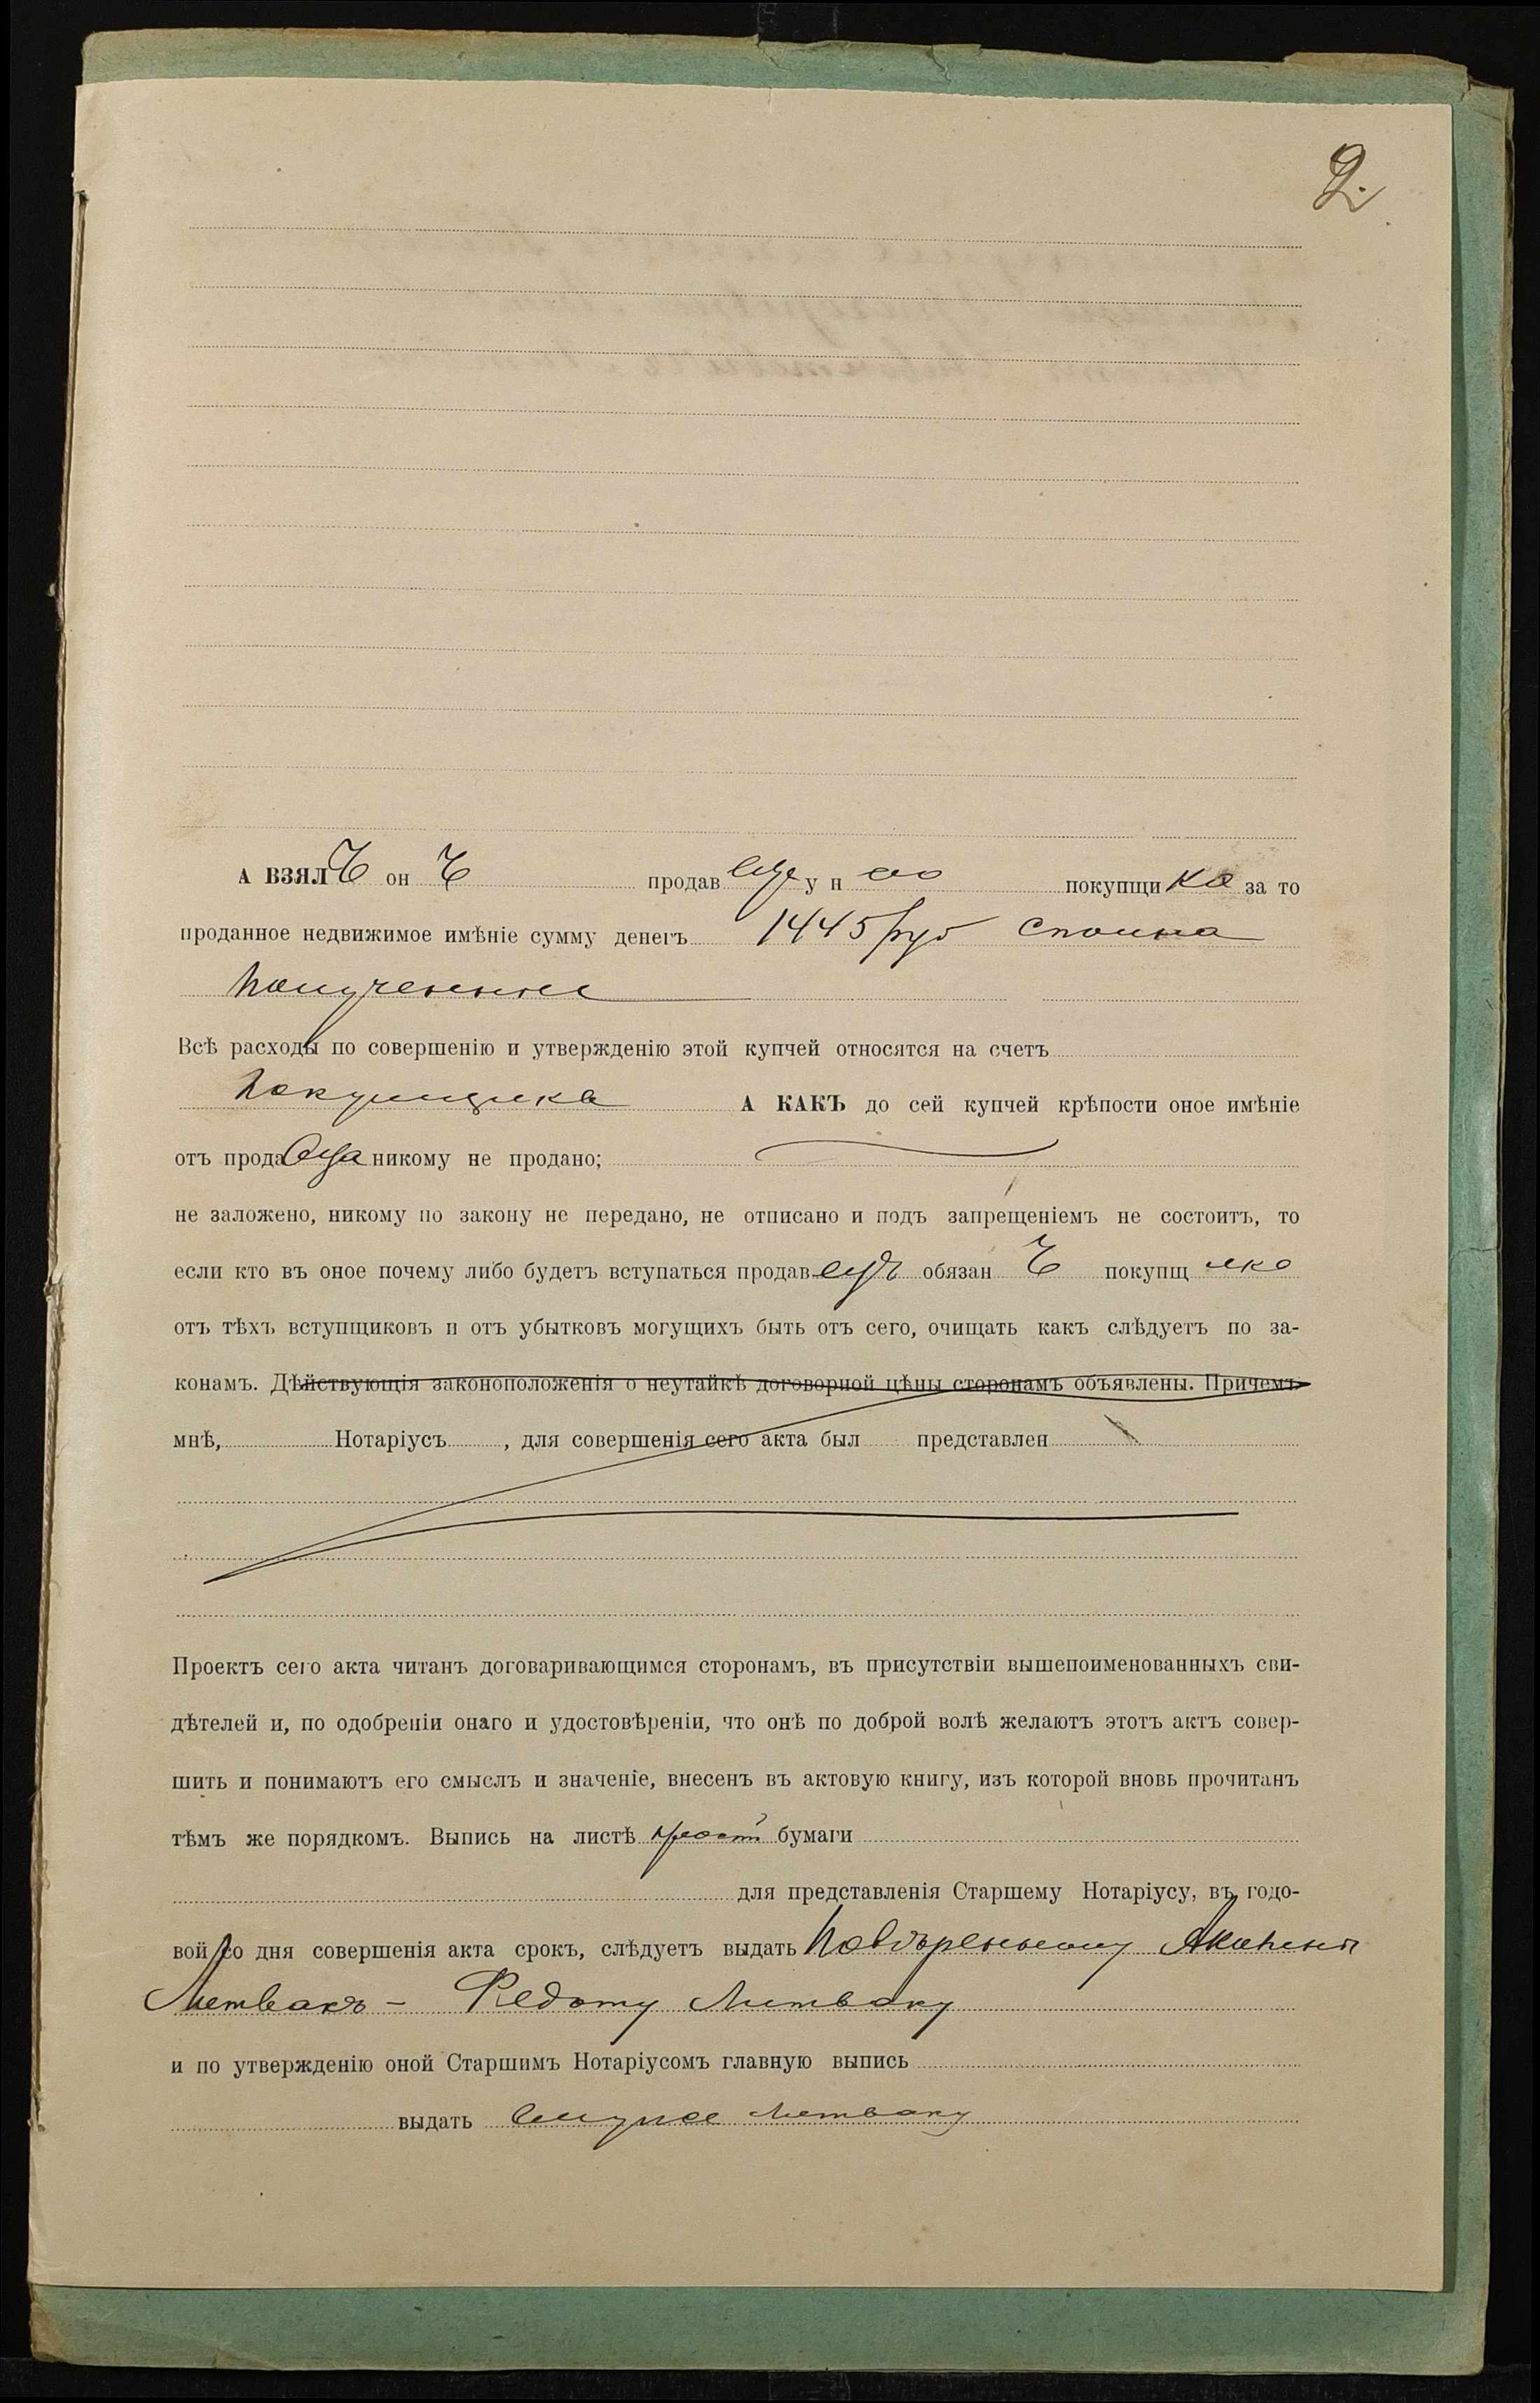 2.
А ВЗЯЛЪ онъ продавецъ у него покупщика за то
проданное недвижимое имѣніе сумму денегъ 1445 руб сполна
полученные
Всѣ расходы по совершенію и утвержденію этой купчей относятся на счетъ
покупщика А КАКЪ до сей купчей крѣпости оное имѣніе
отъ продавца никому не продано;
не заложено, никому по закону не передано, не отписано и подъ запрещеніемъ не состоитъ, то
если кто въ оное почему либо будетъ вступаться продавецъ обязанъ покупщика
отъ тѣхъ вступщиковъ и отъ убытковъ могущихъ быть отъ сего, очищать какъ слѣдуетъ по за-
конамъ. Дѣйствующія законоположенія о неутайкѣ договорной цѣны сторонамъ объявлены. Причемъ
мнѣ, Нотаріусъ , для совершенія сего акта был представлен
Проектъ сего акта читанъ договаривающимся сторонамъ, въ присутствіи вышепоименованныхъ сви-
дѣтелей и, по одобреніи онаго и удостовѣреніи, что онѣ по доброй волѣ желаютъ этотъ актъ совер-
шить и понимаютъ его смыслъ и значеніе, внесенъ въ актовую книгу, изъ которой вновь прочитанъ
тѣмъ же порядкомъ. Выпись на листѣ прост бумаги
для представленія Старшему Нотаріусу, въ годо-
вой со дня совершенія акта срокъ, слѣдуетъ выдать повѣренному
Литвакъ - Федоту Литваку
и по утвержденію оной Старшимъ Нотаріусомъ главную выпись
выдать Литваку